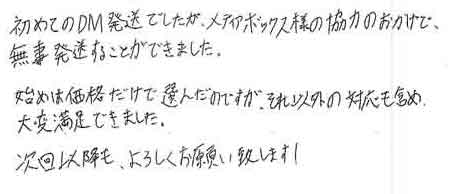 初めてのDM発送でしたが、メディアボックス様の協力のおかげで、
無事発送することができました。
始めは価格だけで選んだのですが、それ以外の対応も含め、
大変満足できました。
次回以降も、よろしくお願い致します!